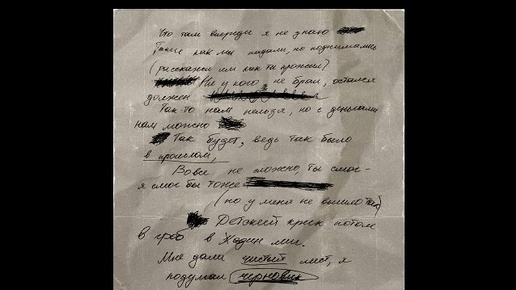 Что там впереди я не знаю
Такие как мы падали, но поднимались
(расскажи им как ты прожил?
Ни у кого не брал, остался
должен
Так то нам нельзя, но с деньгами
нам можно
Так будет, ведь так было
в прошлом,
Вове не можно, ты смог-
я смог бы тоже
(но у меня не вышло так)
Детский крик потом
в гроб в Один миг.
Мне дали чистый лист, я
подумал черновик